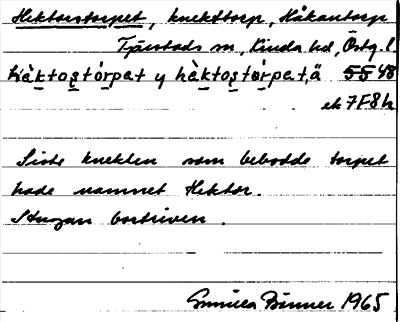 Hektorstorpet, knekttorp, Håkantorp
Tjärstads sn, Kinda hd, Östg. l.
hàktostórpet y hàktostórpet, ä 5548
ek 7F8h
Siste knekten som bebodde torpet
hade namnet Hektor.
Stugan bortriven.
Gunilla Binner 1965